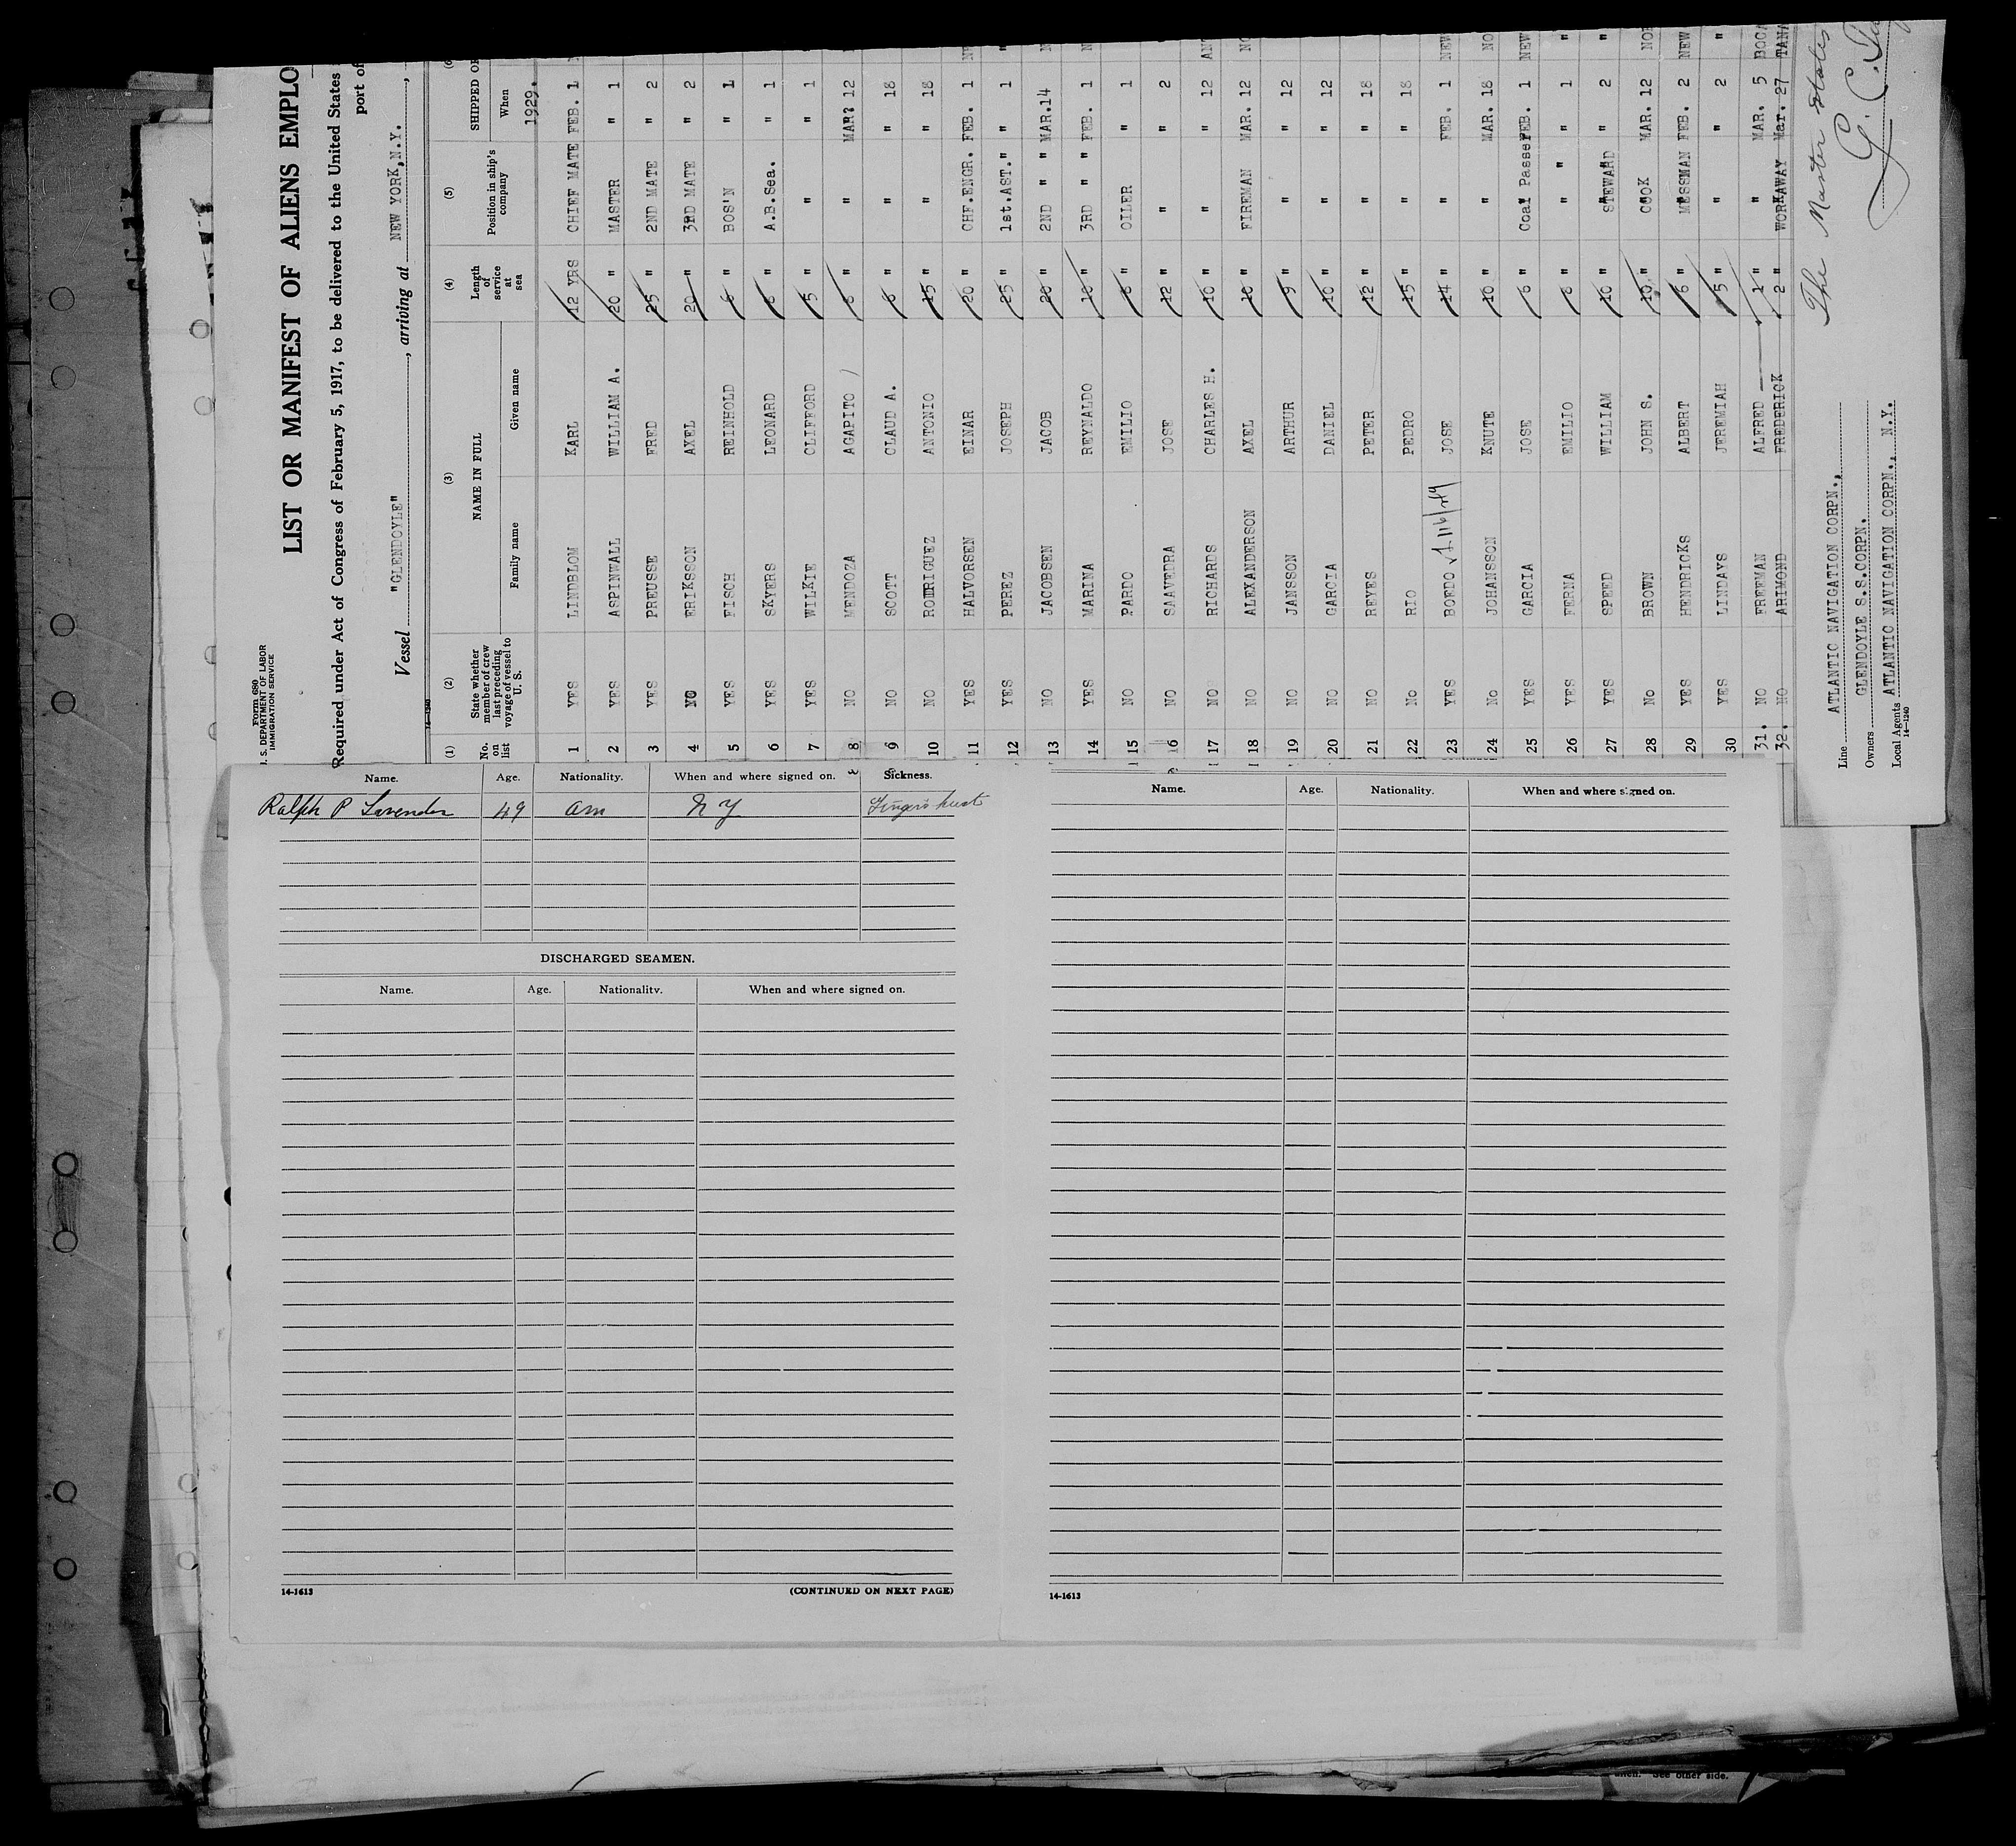 Form 680
S. DEPARTMENT OF LABOR
IMMIGRATION SERVICE
LIST OR MANIFEST OF ALIENS EMPLO
Required under Act of Congress of February 5, 1917, to be delivered to the United States
port of
Vessel "GLENDOYLE", arriving at NEW YORK, N.Y.,
14-1240
(1) (2) (3) (4) (5)
No. on list State whether member of crew last preceding voyage of vessel to U. S. NAME IN FULL Length of service at sea Position in ship's company SHIPPED OR
Family name Given name When
1929.
1 YES LINDBLOM KARL 12 YRS CHIEF MATE FEB. 1
2 YES ASPINWALL WILLIAM A. 20 " MASTER " 1
3 YES PREUSSE FRED 25 " 2ND MATE " 2
4 NO ERIKSSON AXEL 20 " 3RD MATE " 2
5 YES FISCH REINHOLD 6 " BOS'N " 1
6 YES SKYERS LEONARD 6 " A.B.Sea. " 1
7 YES WILKIE CLIFFORD 5 " " " 1
8 NO MENDOZA AGAPITO 6 " " MAR? 12
9 NO SCOTT CLAUD A. 6 " " " 18
10 NO RODRIGUEZ ANTONIO 15 " " " 18
11 YES HALVORSEN EINAR 20 " CHF.ENGR. FEB. 1 NE
12 YES PEREZ JOSEPH 25 " 1st.AST." " 1 "
13 NO JACOBSEN JACOB 20 " 2ND " " MAR.14 N
14 YES MARINA REYNALDO 10 " 3RD " " FEB. 1 N
15 NO PARDO EMILIO 6 " OILER " 1
16 NO SAAVEDRA JOSE 12 " " " 2
17 NO RICHARDS CHARLES H. 10 " " " 12 ANT
18 NO ALEXANDERSON AXEL 10 " FIREMAN MAR. 12 NO
19 NO JANSSON ARTHUR 9 " " " 12
20 NO GARCIA DANIEL 10 " " " 12
21 NO REYES PETER 12 " " " 18
22 No RIO PEDRO 15 " " " 18
23 YES BOEDO JOSE 14 " " FEB. 1 NEW
24 No JOHANSSON KNUTE 10 " " MAR. 18 NO
25 YES GARCIA JOSE 6 " Coal Passer FEB. 1 NEW
26 YES FERNA EMILIO 6 " " " 1 "
27 YES SPEED WILLIAM 10 " STEWARD " 2 "
28 No BROWN JOHN S. 10 " COOK MAR. 12 NOR
29 YES HENDRICKS ALBERT 6 " MESSMAN FEB. 2 NEW
30 YES LINDAYS JEREMIAH 5 " " " 2 "
31. NO FREEMAN ALFRED 1 " " MAR. 5 BOCA
32. NO ARIMOND FREDERICK 2 " WORKAWAY Mar. 27 TANA
Line ATLANTIC NAVIGATION CORPN.,
Owners GLENDOYLE S.S.CORPN.
Local Agents ATLANTIC NAVIGATION CORPN., N.Y.
14-1240
The Master states
Name. Age. Nationality. When and where signed on. Sickness.
Ralph P Lavender 49 Am N Y Fingers hurt
DISCHARGED SEAMEN.
Name. Age. Nationality. When and where signed on.
14-1613 (CONTINUED ON NEXT PAGE)
Name. Age. Nationality. When and where signed on.
14-1613
See other side.